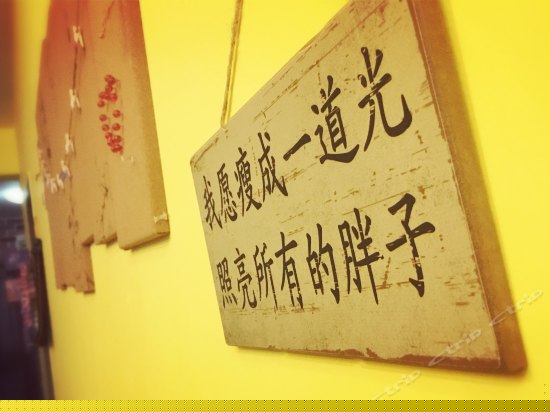 我愿瘦成一道光
照亮所有的胖子
ctrip ctrip ctrip